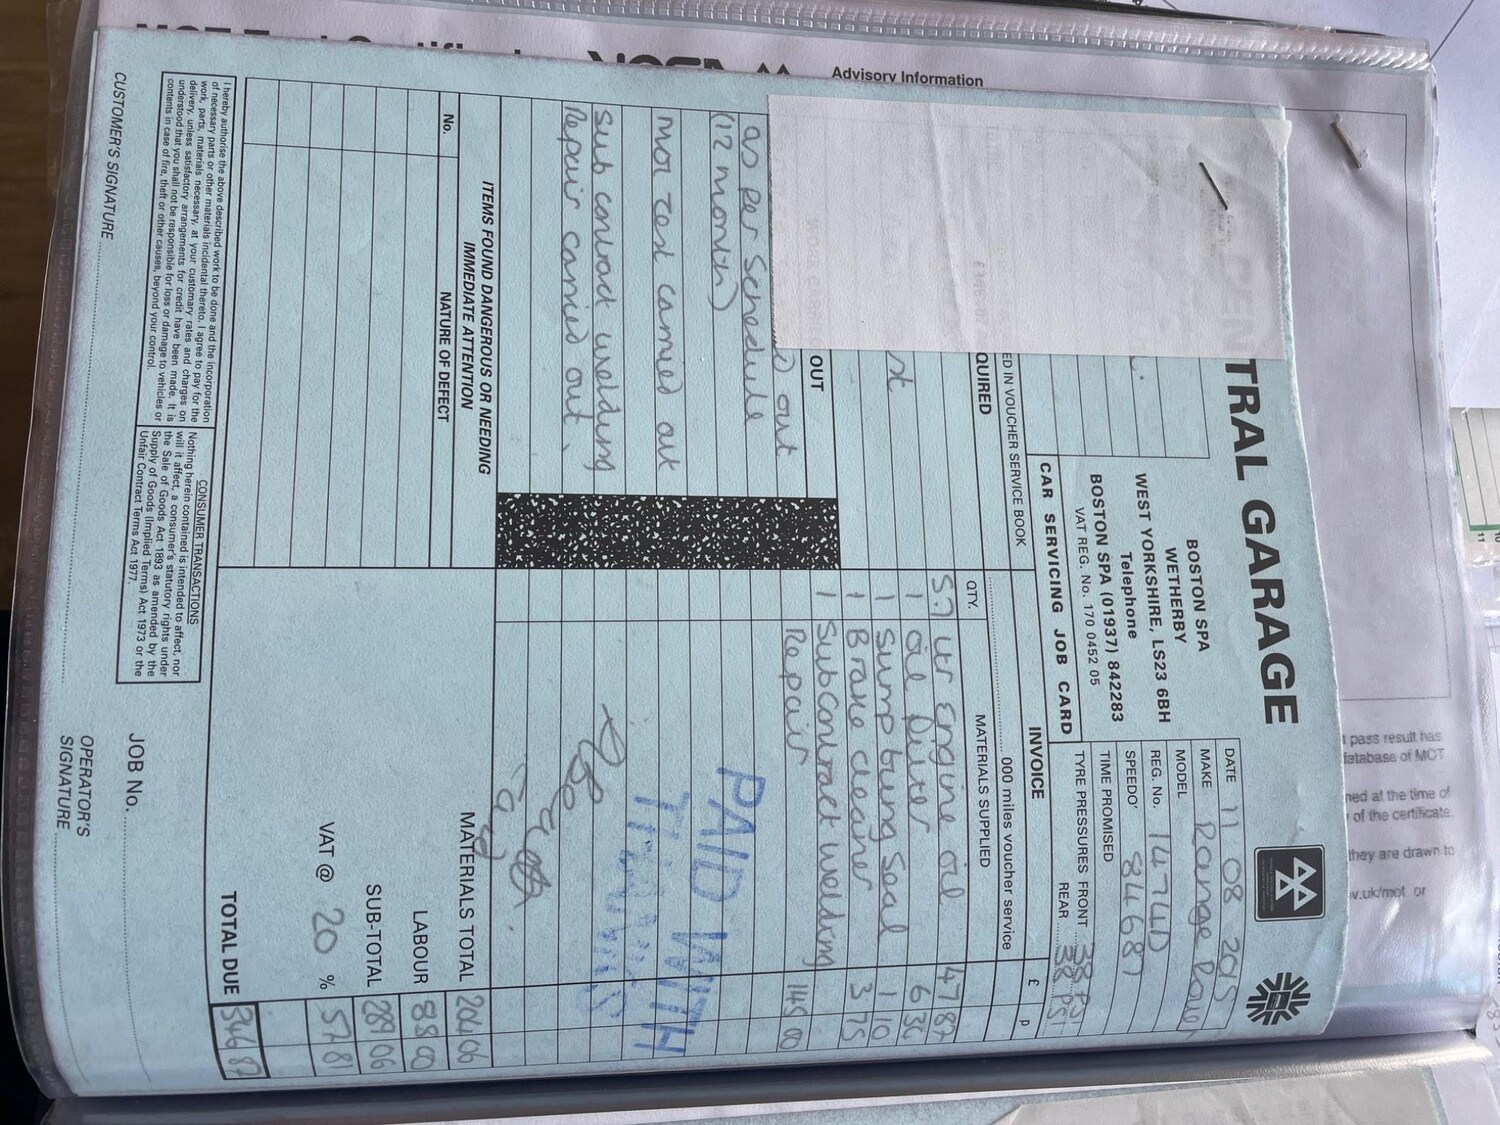 Advisory Information
TRAL GARAGE
BOSTON SPA
WETHERBY
WEST YORKSHIRE, LS23 6BH
Telephone
BOSTON SPA (01937) 842283
VAT REG. No. 170 0452 05
CAR SERVICING JOB CARD
DATE 11 08 2015
MAKE Range Rover
MODEL
REG. No. 1474D
SPEEDO' 84687
TIME PROMISED
TYRE PRESSURES FRONT 38 PSI
REAR 38 PSI
ED IN VOUCHER SERVICE BOOK
QUIRED
st
OUT
out
as per schedule
(12 month)
MOT Test carried out
Sub contract welding
Repair carried out.
ITEMS FOUND DANGEROUS OR NEEDING
IMMEDIATE ATTENTION
No. NATURE OF DEFECT
INVOICE
000 miles voucher service
£ p
QTY. MATERIALS SUPPLIED
5.7 ltr Engine oil 47 87
1 oil Filter 6 34
1 Sump bung Seal 1 10
1 Brake cleaner 3 75
1 Subcontract welding
Repair 145 00
PAID WITH
THANKS
MATERIALS TOTAL 204 06
LABOUR 85 00
SUB-TOTAL 289 06
VAT @ 20 % 57 81
TOTAL DUE 346 87
I hereby authorise the above described work to be done and the incorporation
of necessary parts or other materials incidental thereto. I agree to pay for the
work, parts, materials necessary, at your customary rates and charges on
delivery, unless satisfactory arrangements for credit have been made. It is
understood that you shall not be responsible for loss or damage to vehicles or
contents in case of fire, theft or other causes, beyond your control.
CONSUMER TRANSACTIONS
Nothing herein contained is intended to affect, nor
will it affect, a consumer's statutory rights under
the Sale of Goods Act 1893 as amended by the
Supply of Goods (Implied Terms) Act 1973 or the
Unfair Contract Terms Act 1977.
JOB No.
CUSTOMER'S SIGNATURE
OPERATOR'S
SIGNATURE
pass result has
database of MOT
ned at the time of
of the certificate.
they are drawn to
v.uk/mot or